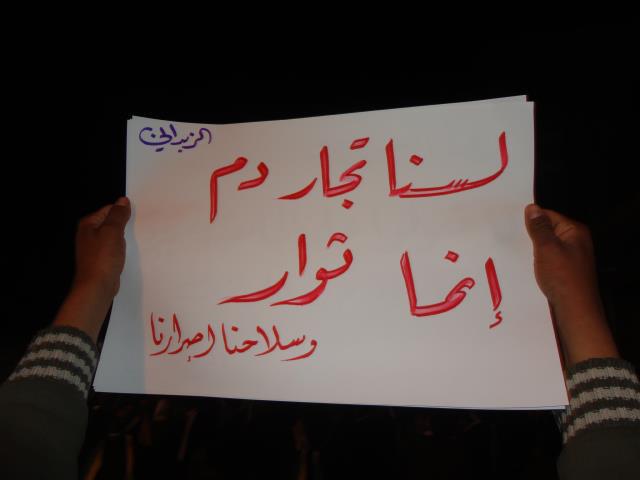 الزبداني
لسنا تجار دم
إنما ثوار
وسلاحنا اصرارنا